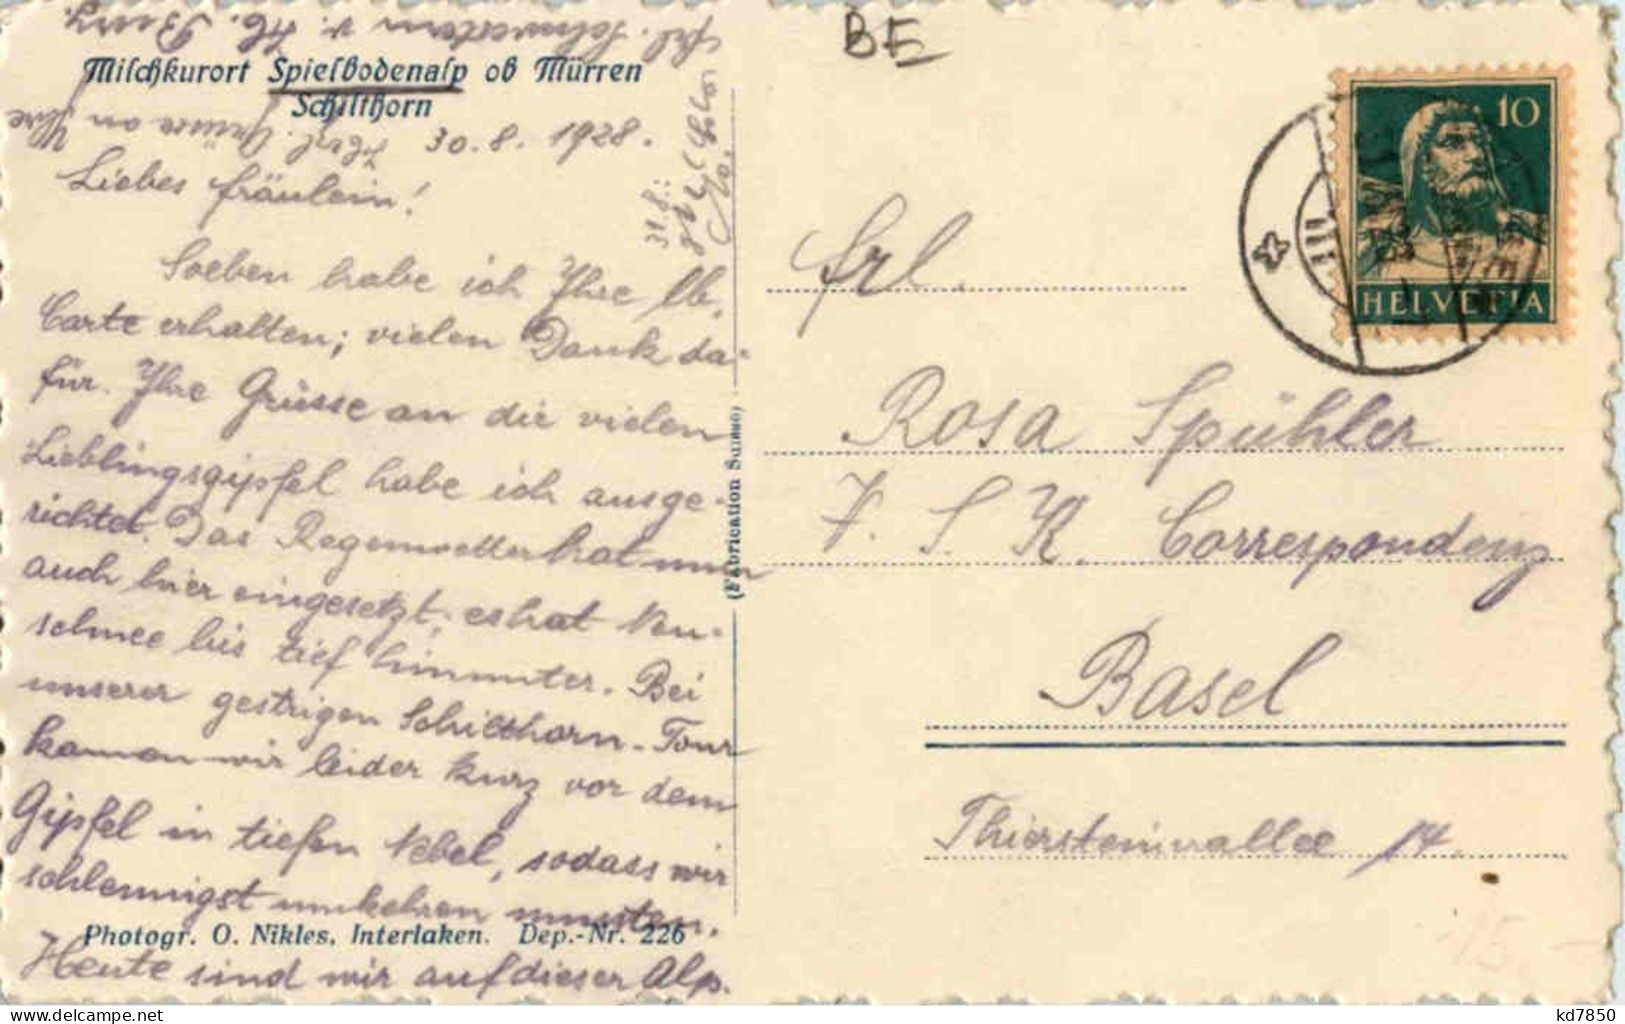 Milchkurort Spielbodenalp ob Mürren
Schilthorn
30.8.1928.
Liebes Fräulein!
Soeben habe ich Ihre lb.
Carte erhalten; vielen Dank da-
für. Ihre Grüsse an die vielen
Lieblingsgipfel habe ich ausge-
richtet. Das Regenwetter hat nun
auch hier eingesetzt; es hat Neu-
schnee bis tief hinunter. Bei
unserer gestrigen Schilthorn-Tour
kamen wir leider kurz vor dem
Gipfel in tiefen Nebel, sodass wir
schleunigst umkehren mussten.
Heute sind wir auf dieser Alp.
Photogr. O. Nikles, Interlaken. Dep.-Nr. 226
Herzl. Grüsse an Ihre
Frl. Schwestern v. Hb.
31.8.:
(Fabrication Suisse)
BE
10
HELVETIA
Frl.
Rosa Spühler
V. S. K. Correspondenz
Basel
Thiersteinerallee 14.
15.-
delcampe.net
kd7850